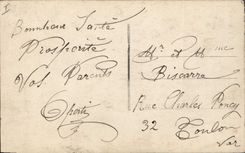 Bonheur Santé
Prosperité
Vos Parents
Mr et Mme
Biscarre
Rue Charles Poncy
32 Toulon
Var